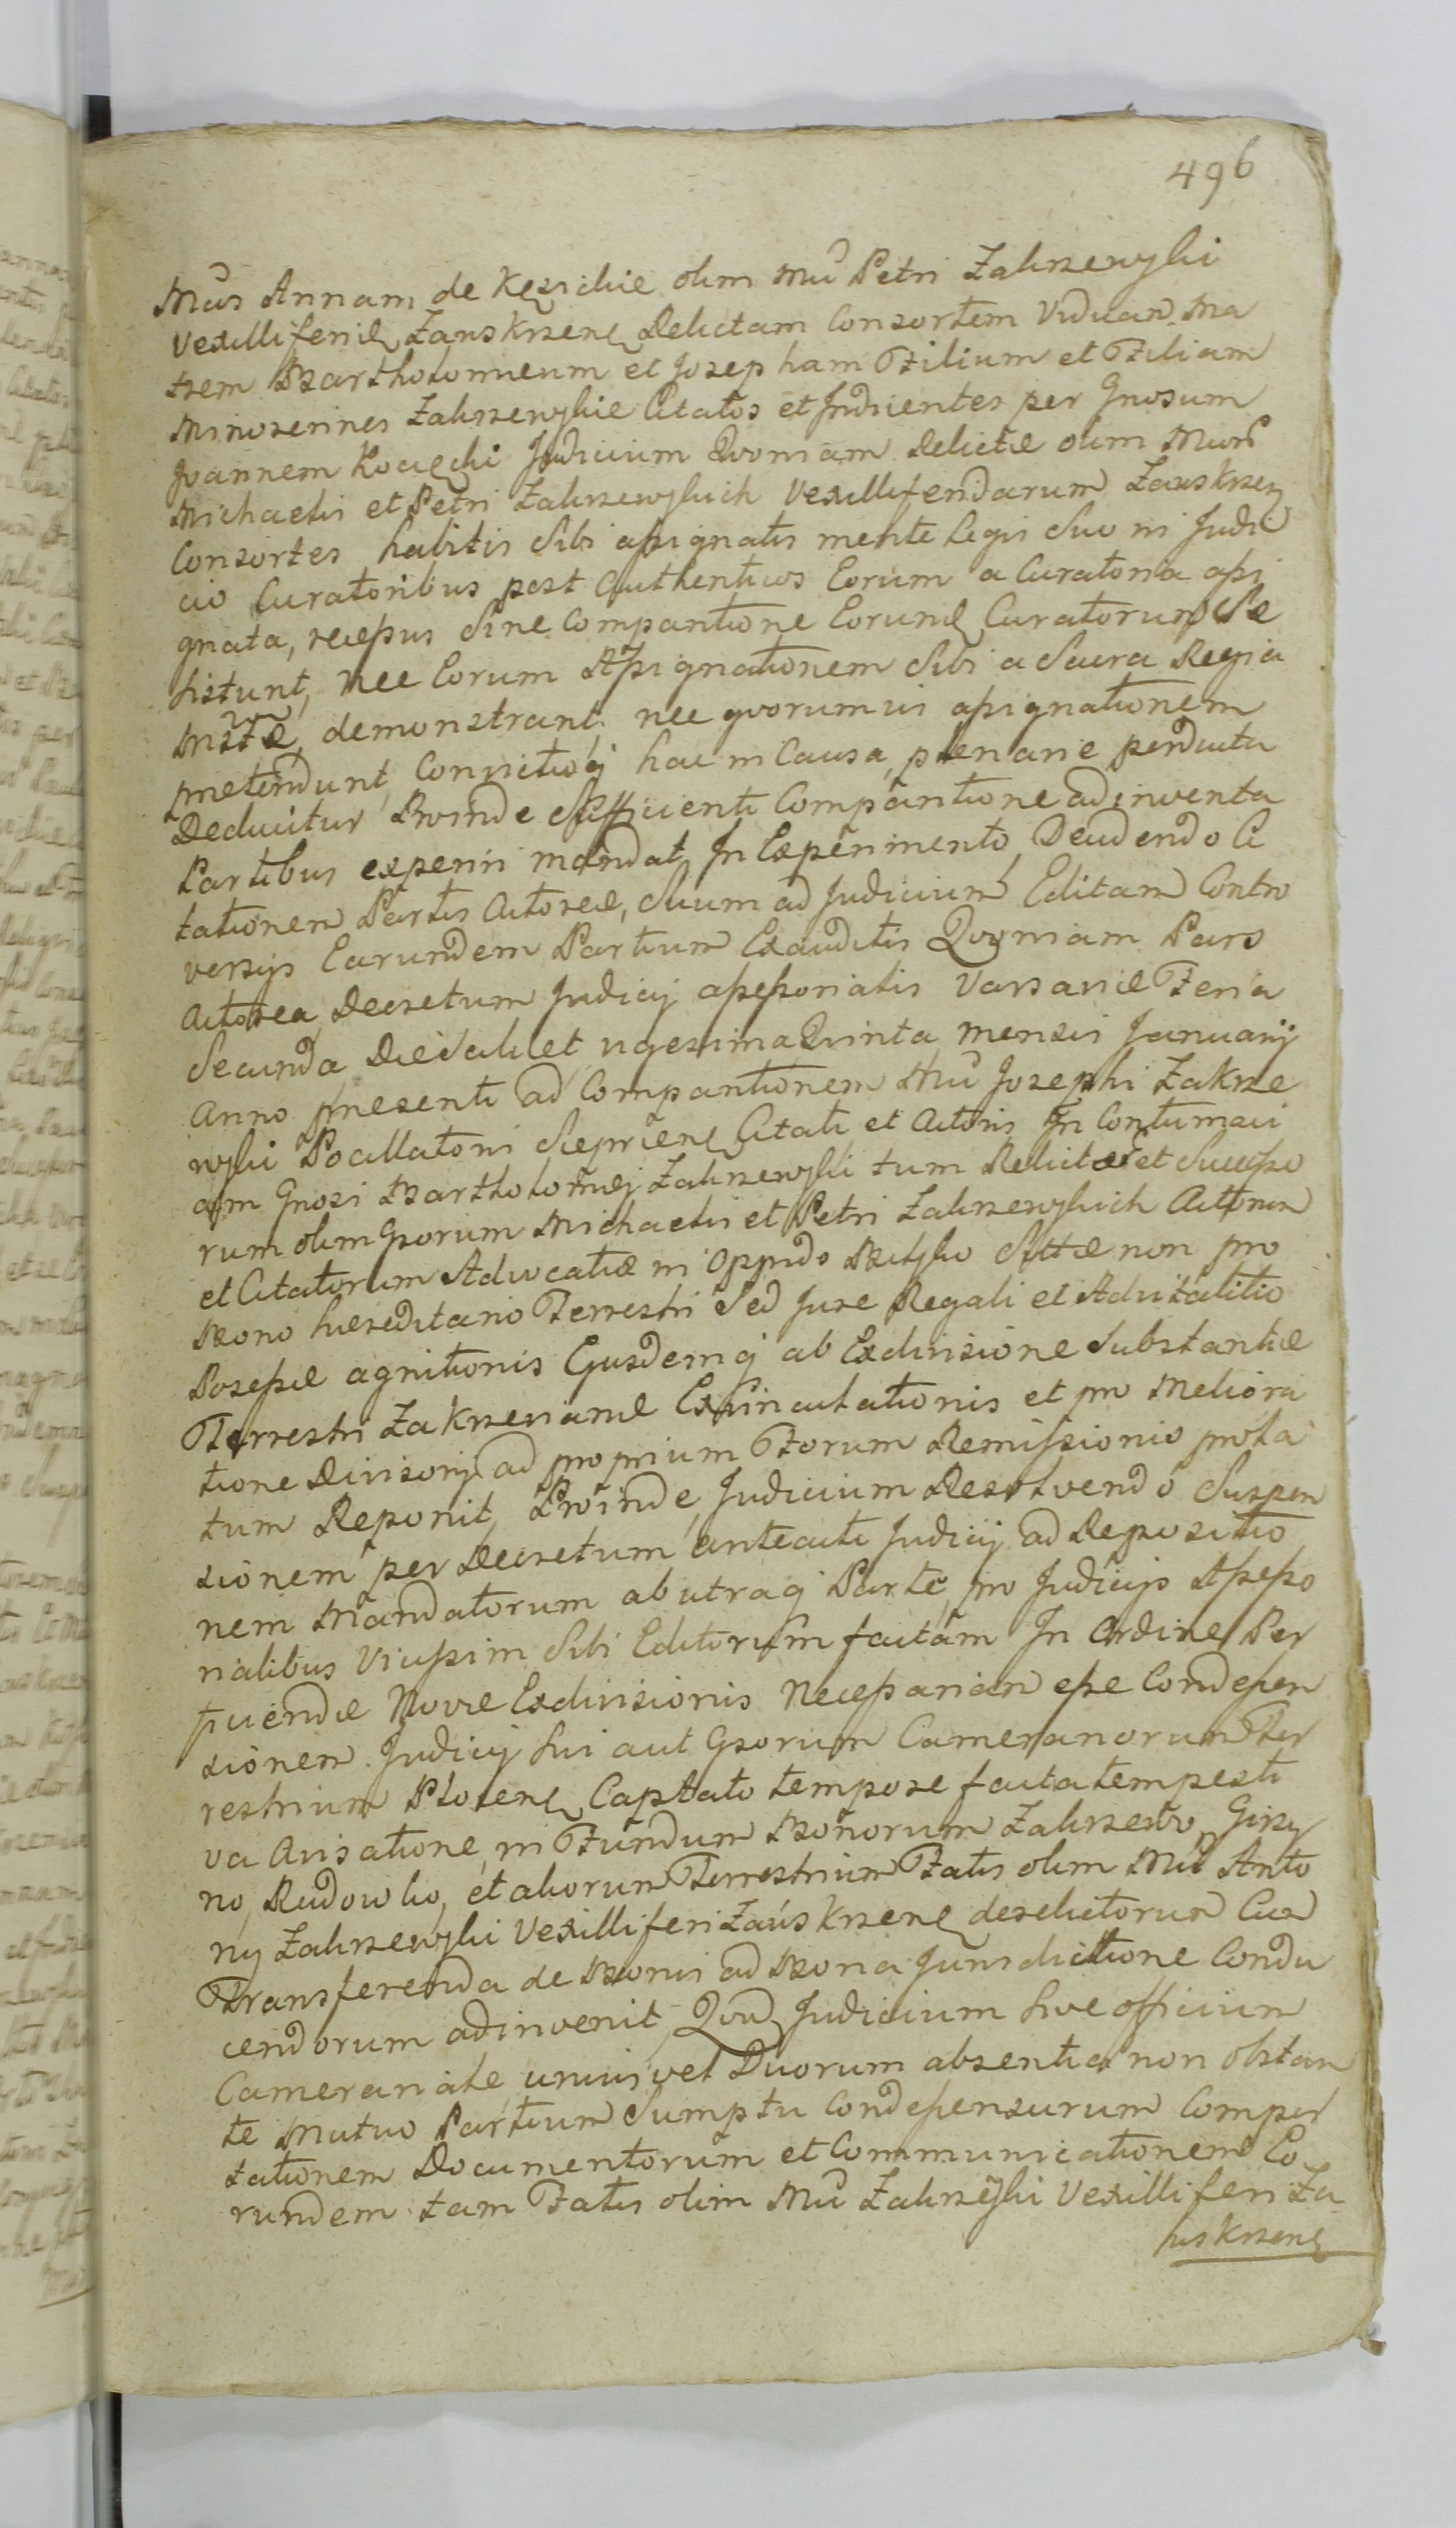 496
Mus Annam de Kęsickie olim Mci Petri Zakrzewski
Vexilliferie Zauskrzene Relictam Consortem Viduam Ma
trem Bartholomeum et Josepham Filium et Filiam
Minorennes Zakrzewskie Citatos et Inducentes per Gnosum
Joannem Kociecki Judicium Qvoniam Relictæ olim Mcor
Michaelis et Petri Zakrzewskich Vexilliferidarum Zauskrzen
Consortes habitis Sibi assignatis mente Legis Suo in Judi
cio Curatoribus post authenticos Eorum a Curatoria assi
gnata, recessus Sine Comparitione Eorund Curatorum Se
Sistunt, nec Eorum Assignationem Sibi a Sacra Regia
Mtte, demonstrant, nec qvorumvis assignationem
prætendunt, Convictioq hac in Causa, plenarie perducta
Deducitur Proinde Sufficienti Comparitione adinventa
Partibus experiri mandat, In Experimento, Deudendo Ci
tationem Partis Actoreæ, Suum ad Judicium Editam Contro
versijs Earundem Partium Exauditis Qvoniam Pars
Actorea, Decretum Judicij assessorialis Varsaviæ Feria
Secunda Die Scilicet vigesima Qvinta mensis Januarij
Anno præsenti ad Comparitionem Mci Josephi Zakrze
wski Pocillatoris Sieprcene Citati et Actoris In Contumaci
am Gnosi Bartholomæj Zakrzewski tum Relictar et Successo
rum olim Gsorum Michaelis et Petri Zakrzewskich Actorum
et Citatorum Advocatiæ in Oppido Sittæ non pro
Bono hæreditario Terrestri Sed Jure Regali et Advitalitio
Possessæ agnitionis Ejusdemq ab Exdivisione Substantiæ
Terrestri Zakrzevianæ Exvinculationis et pro Meliora
tione Divisorij ad proprium Forum Remissionis prola
tum Reponit, Proinde, Judicium Resolvendo Suspen
sionem per Decretum anteacti Judicij ad Repositio
nem Mandatorum ab utraq Parte, pro Judicijs Assesso
rialibus Vicissim Sibi Editorum factam In Ordine Per
ficiendæ Novæ Exdivisionis Necessariam esse Condescen
sionem Judicij Sui aut Gsorum Cameranorum Ter
restrium Plocene, Captato tempore facta tempesti
va Avisatione, in Fundum Bonorum Zakrzewo, Girzy
no, Rudowko, et aliorum Terrestrium Fatis olim Mci Anto
nij Zakrzewski Vexilliferi Zauskrzene derelictorum Cum
Transferenda de Bonis ad Bona Jurisdictione Condu
cendorum adinvenit, Qvod Judicium Sive officium
Cameranale, unius vel Duorum absentia non obstan
te Mutuo Partium Sumptu Condescensurum Compor
tationem Documentorum et Communicationem Eo
rundem tam Fatis olim Mci Zakrzeski Vexilliferi Za
uskrzene